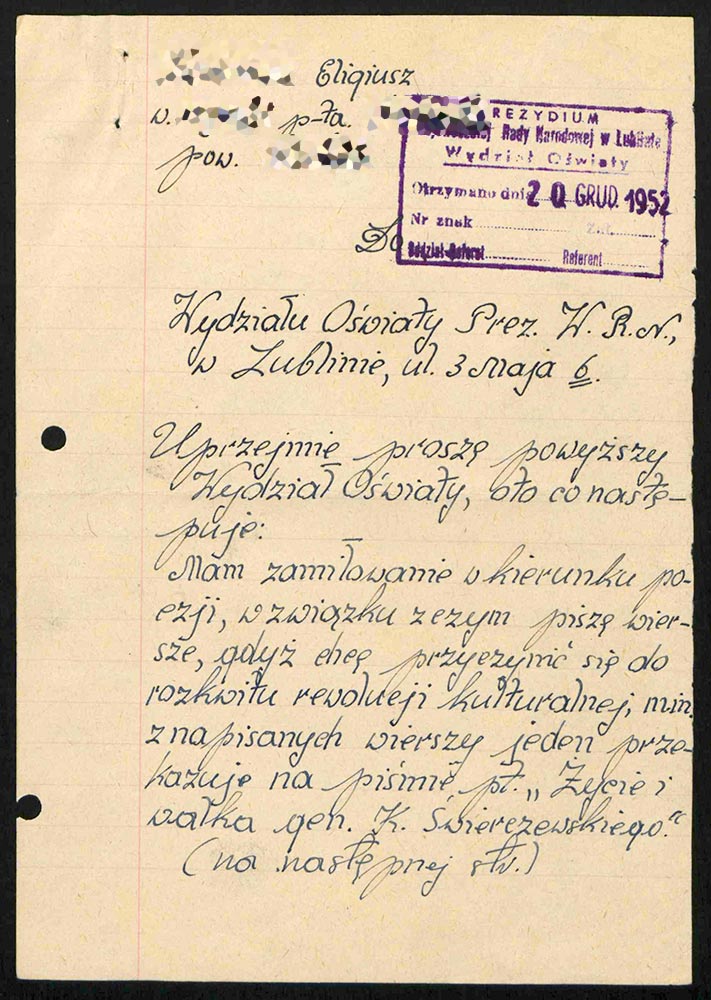 Eligiusz
w. p-ta.
pow.
REZYDIUM
Rady Narodowej w Lublinie
Wydział Oświaty
Otrzymano dnia 20 GRUD. 1952
Nr znak Zał.
Oddział-Referat Referent
Do
Wydziału Oświaty Prez. W. R. N.,
w Lublinie, ul. 3 Maja 6.
Uprzejmię proszę powyższy
Wydział Oświaty, oto co nastę-
puje:
Mam zamiłowanie w kierunku po-
ezji, w związku z czym piszę wier-
sze, gdyż chcę przyczynić się do
rozkwitu rewolucji kulturalnej, min.
z napisanych wierszy jeden prze-
kazuję na piśmię pt. „Życie i
walka gen. K. Świerczewskiego."
(na następnej str.)